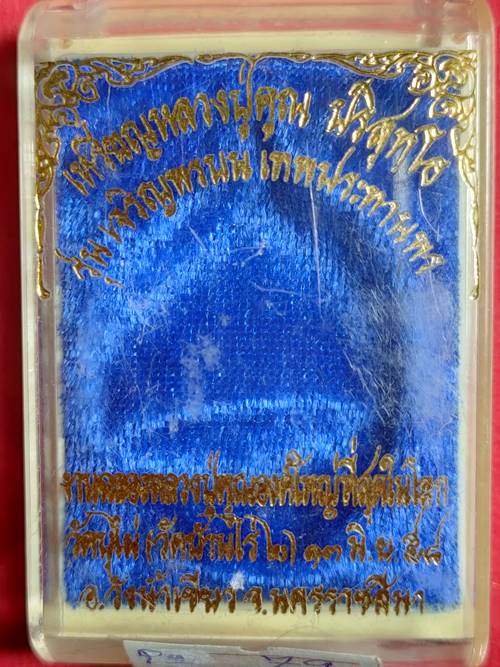 เหรียญหลวงปู่คูณ ปริสุทฺโธ
รุ่น เจริญพรบน เทพประทานพร
งานฉลองหลวงปู่คูณองค์ใหญ่ที่สุดในโลก
วัดบุไผ่ (วัดบ้านไร่ ๒) ๑๓ มิ.ย. ๕๘
อ.วังน้ำเขียว จ.นครราชสีมา